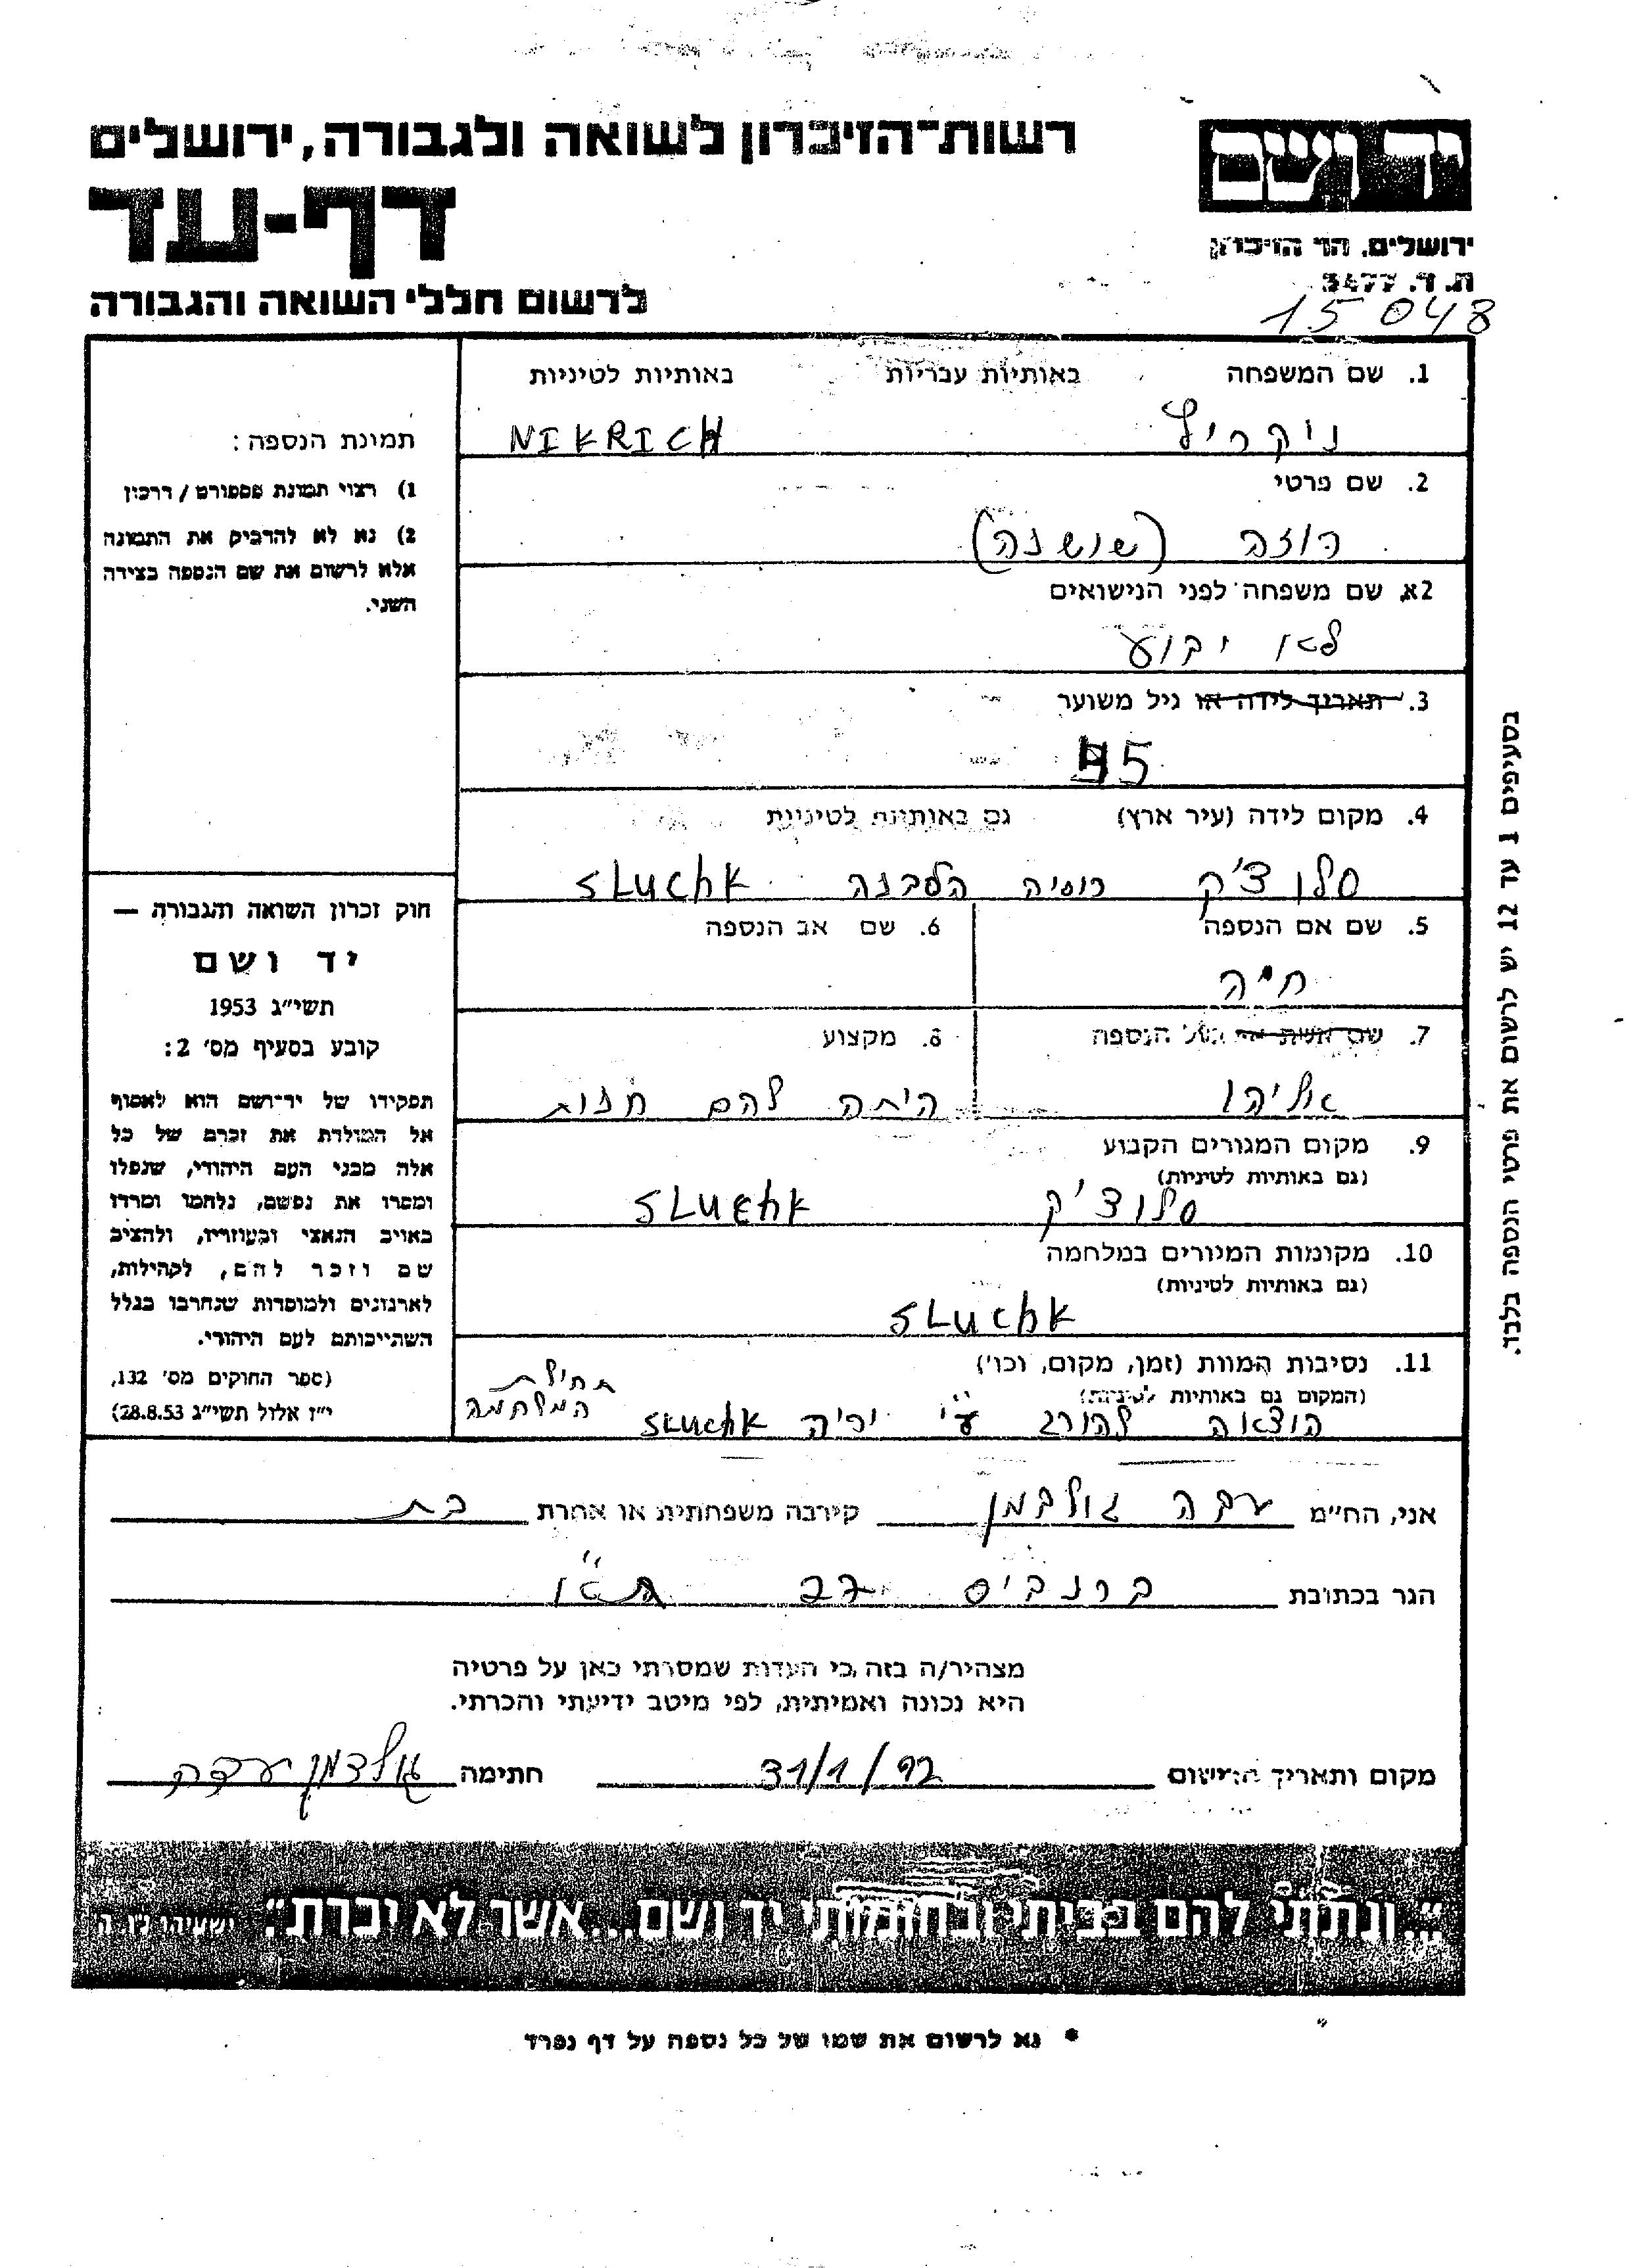 רשות־הזיכרון לשואה ולגבורה, ירושלים
יד ושם
דף-עד
ירושלים, הר הזיכרון
ת. ד. 3477
לרשום חללי השואה והגבורה
15 048
1. שם המשפחה באותיות עבריות באותיות לטיניות
ניקריץ NIKRICH
2. שם פרטי
רוזה (שושנה)
2א. שם משפחה לפני הנישואים
לאו ידוע
3. תאריך לידה או גיל משוער
45
4. מקום לידה (עיר ארץ) גם באותיות לטיניות
סלוצ'ק רוסיה הלבנה SLUCHK
5. שם אם הנספה 6. שם אב הנספה
חיה
7. שם אשת או בעל הנספה 8. מקצוע
אליהו היתה להם חנות
9. מקום המגורים הקבוע
(גם באותיות לטיניות)
סלוצ'ק SLUCHK
10. מקומות המגורים במלחמה
(גם באותיות לטיניות)
SLUCHK
11. נסיבות המוות (זמן, מקום, וכו')
(המקום גם באותיות לטיניות)
הוצאה להורג ע"י יריה SLUCHK תחילת
המלחמה
תמונת הנספה:
1) רצוי תמונת פספורט / דרכון
2) נא לא להדביק את התמונה
אלא לרשום את שם הנספה בצידה
השני.
חוק זכרון השואה והגבורה —
יד ושם
תשי״ג 1953
קובע בסעיף מס׳ 2:
תפקידו של יד־ושם הוא לאסוף
אל המולדת את זכרם של כל
אלה מבני העם היהודי, שנפלו
ומסרו את נפשם, נלחמו ומרדו
באויב הנאצי ובעוזריו, ולהציב
שם וזכר להם, לקהילות,
לארגונים ולמוסדות שנחרבו בגלל
השתייכותם לעם היהודי.
(ספר החוקים מס׳ 132,
י״ז אלול תשי״ג 28.8.53)
בסעיפים 1 עד 12 יש לרשום את פרטי הנספה בלבד.
אני, הח״מ עדה גולדמן קירבה משפחתית או אחרת בת
הגר בכתובת ברנדיס 22 ת"א
מצהיר/ה בזה כי העדות שמסרתי כאן על פרטיה
היא נכונה ואמיתית, לפי מיטב ידיעתי והכרתי.
מקום ותאריך הרישום 31/1/92 חתימה גולדמן עדה
״...ונתתי להם בביתי ובחומותי יד ושם...אשר לא יכרת״. ישעיהו נ״ו, ה
* נא לרשום את שמו של כל נספה על דף נפרד